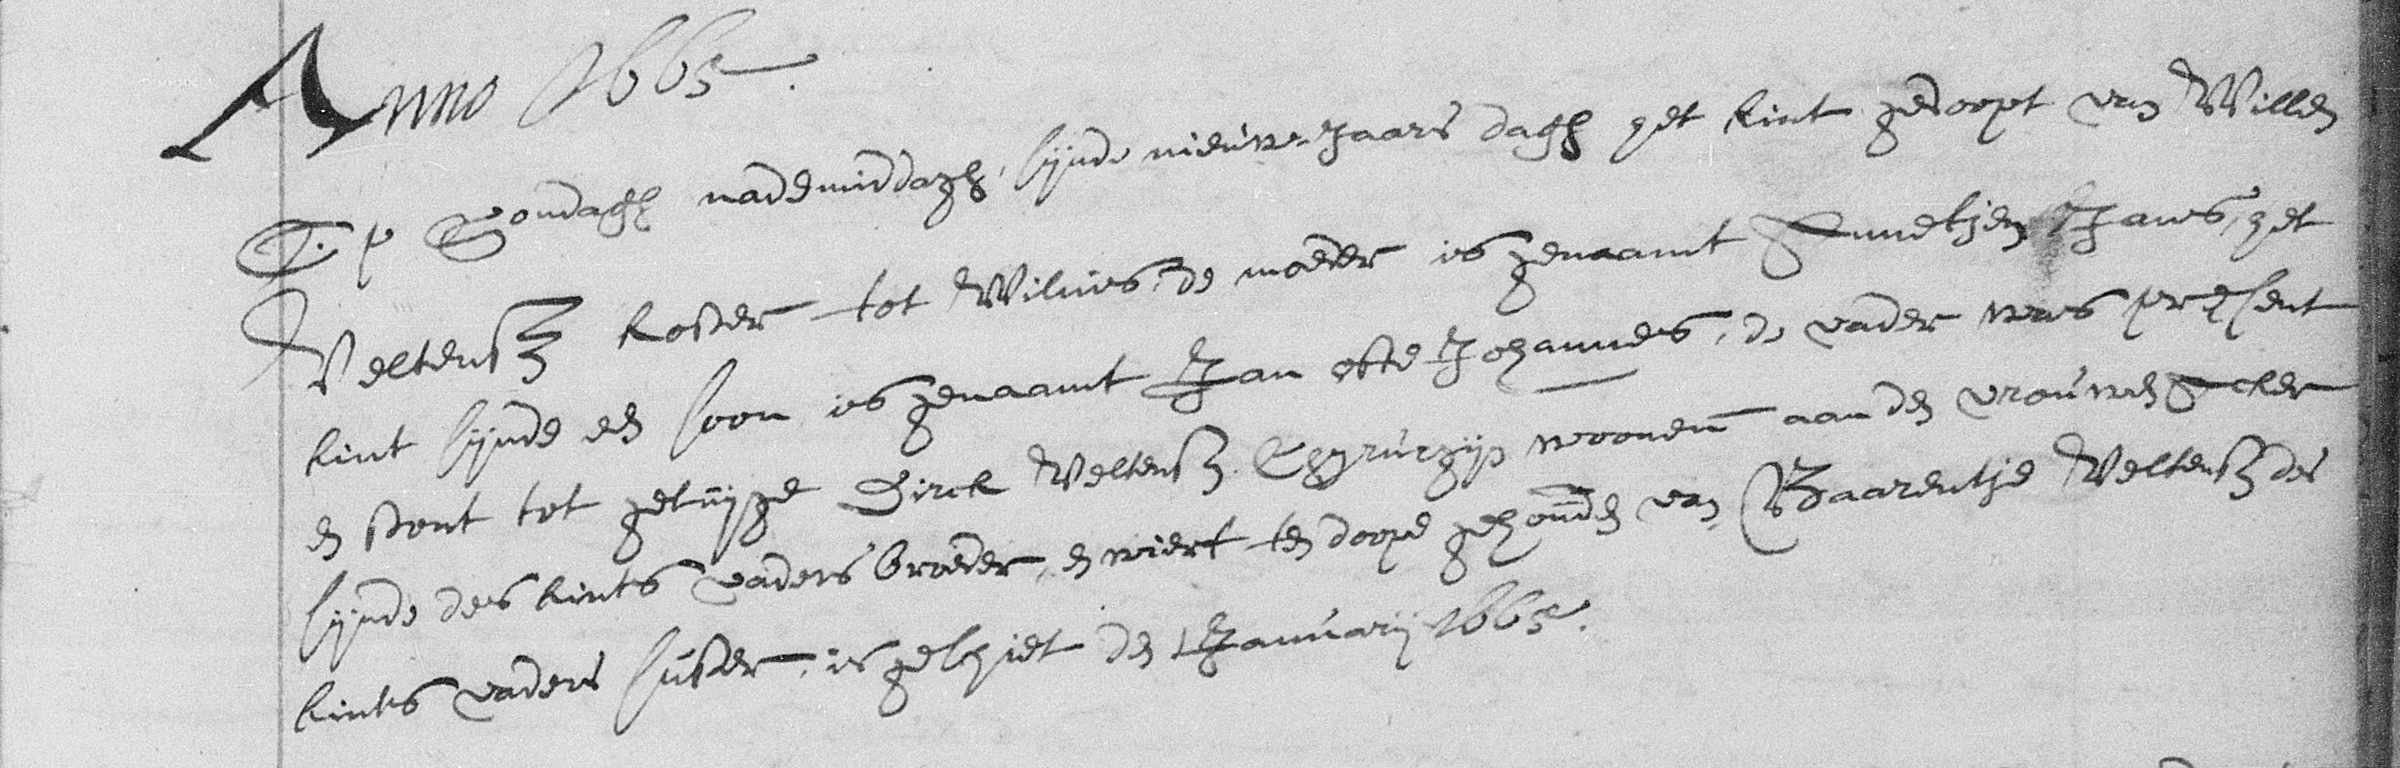 Anno 1665.
Op Sondagh nademiddagh, sijnde nieuwe-Jaars dagh het kint gedoopt van Willem
Veltensz koster tot Wilnis, de moeder is genaamt Annetjen Jans, het
kint sijnde een soon is genaamt Jan ofte Johannes, de vader was present
en stont tot getuijge Dirck Veltensz. Chyrurgijn woonend aan den vrouwen acker
sijnde des kints vaders broeder, en wiert ten doope gehouden van Baarentje Veltensz des
kints vaders suster, is geschiet den 1 Januarij 1665.